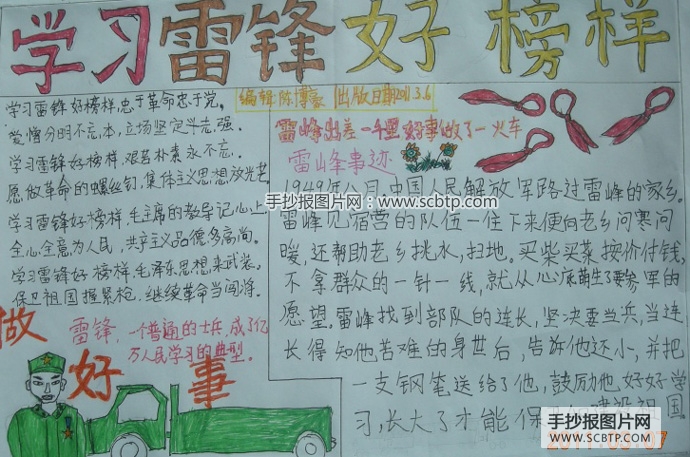 学习雷锋好榜样
编辑陈博豪 出版日期2011.3.6
学习雷锋好榜样,忠于革命忠于党。
爱憎分明不忘本,立场坚定斗志强。
学习雷锋好榜样,艰苦朴素永不忘。
愿做革命的螺丝钉,集体主义思想放光芒
学习雷锋好榜样,毛主席的教导记心上
全心全意为人民,共产主义品德多高尚。
学习雷锋好榜样,毛泽东思想来武装。
保卫祖国握紧枪,继续革命当闯将。
雷峰出差一千里好事做了一火车
雷峰事迹
1949年八月,中国人民解放军路过雷峰的家乡。
雷峰见宿营的队伍一住下来便向老乡问寒问
暖,还帮助老乡挑水,扫地。买柴买菜按价付钱,
不拿群众的一针一线,就从心底萌生了要参军的
愿望。雷峰找到部队的连长,坚决要当兵,当连
长得知他苦难的身世后,告诉他还小并把
一支钢笔送给了他,鼓励他,好好学
习,长大了才能保 建设祖国
做好事
雷锋,一个普通的士兵,成了亿
万人民学习的典型。
手抄报图片网
www.scbtp.com
手抄报图片网
WWW.SCBTP.COM